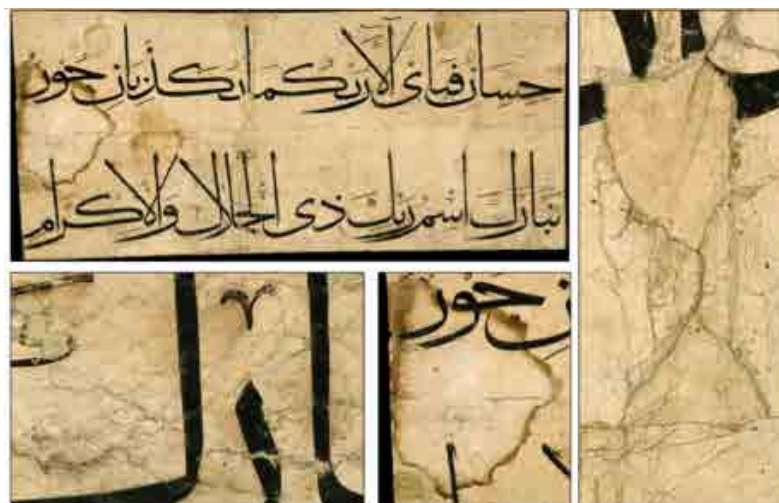 حِسَانٌ فَبِأَىِّ آلَاءِ رَبِّكُمَا تُكَذِّبَانِ حُورٌ
تَبَارَكَ اسْمُ رَبِّكَ ذِى الْجَلَالِ وَالْاِكْرَامِ
حُورٌ